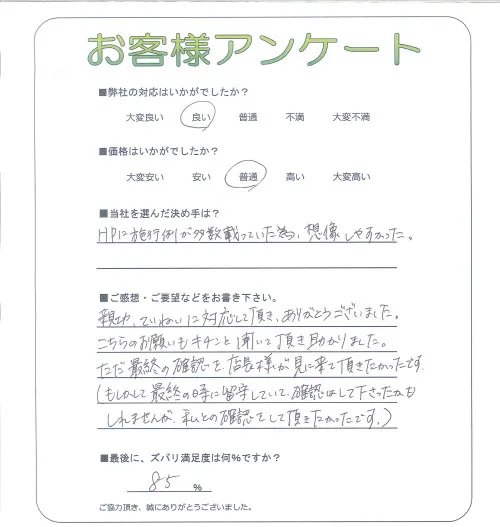 お客様アンケート
■弊社の対応はいかがでしたか?
大変良い 良い 普通 不満 大変不満
■価格はいかがでしたか?
大変安い 安い 普通 高い 大変高い
■当社を選んだ決め手は?
HPに施行例が多数載っていた為、想像しやすかった。
■ご感想・ご要望などをお書き下さい。
親切、ていねいに対応して頂き、ありがとうございました。
こちらのお願いもキチンと聞いて頂き助かりました。
ただ最終の確認を店長様が見に来て頂きたかったです
(もしかして最終の時に留守していて、確認はして下さったかも
しれませんが、私との確認をして頂きたかったです。)
■最後に、ズバリ満足度は何%ですか?
85 %
ご協力頂き、誠にありがとうございました。